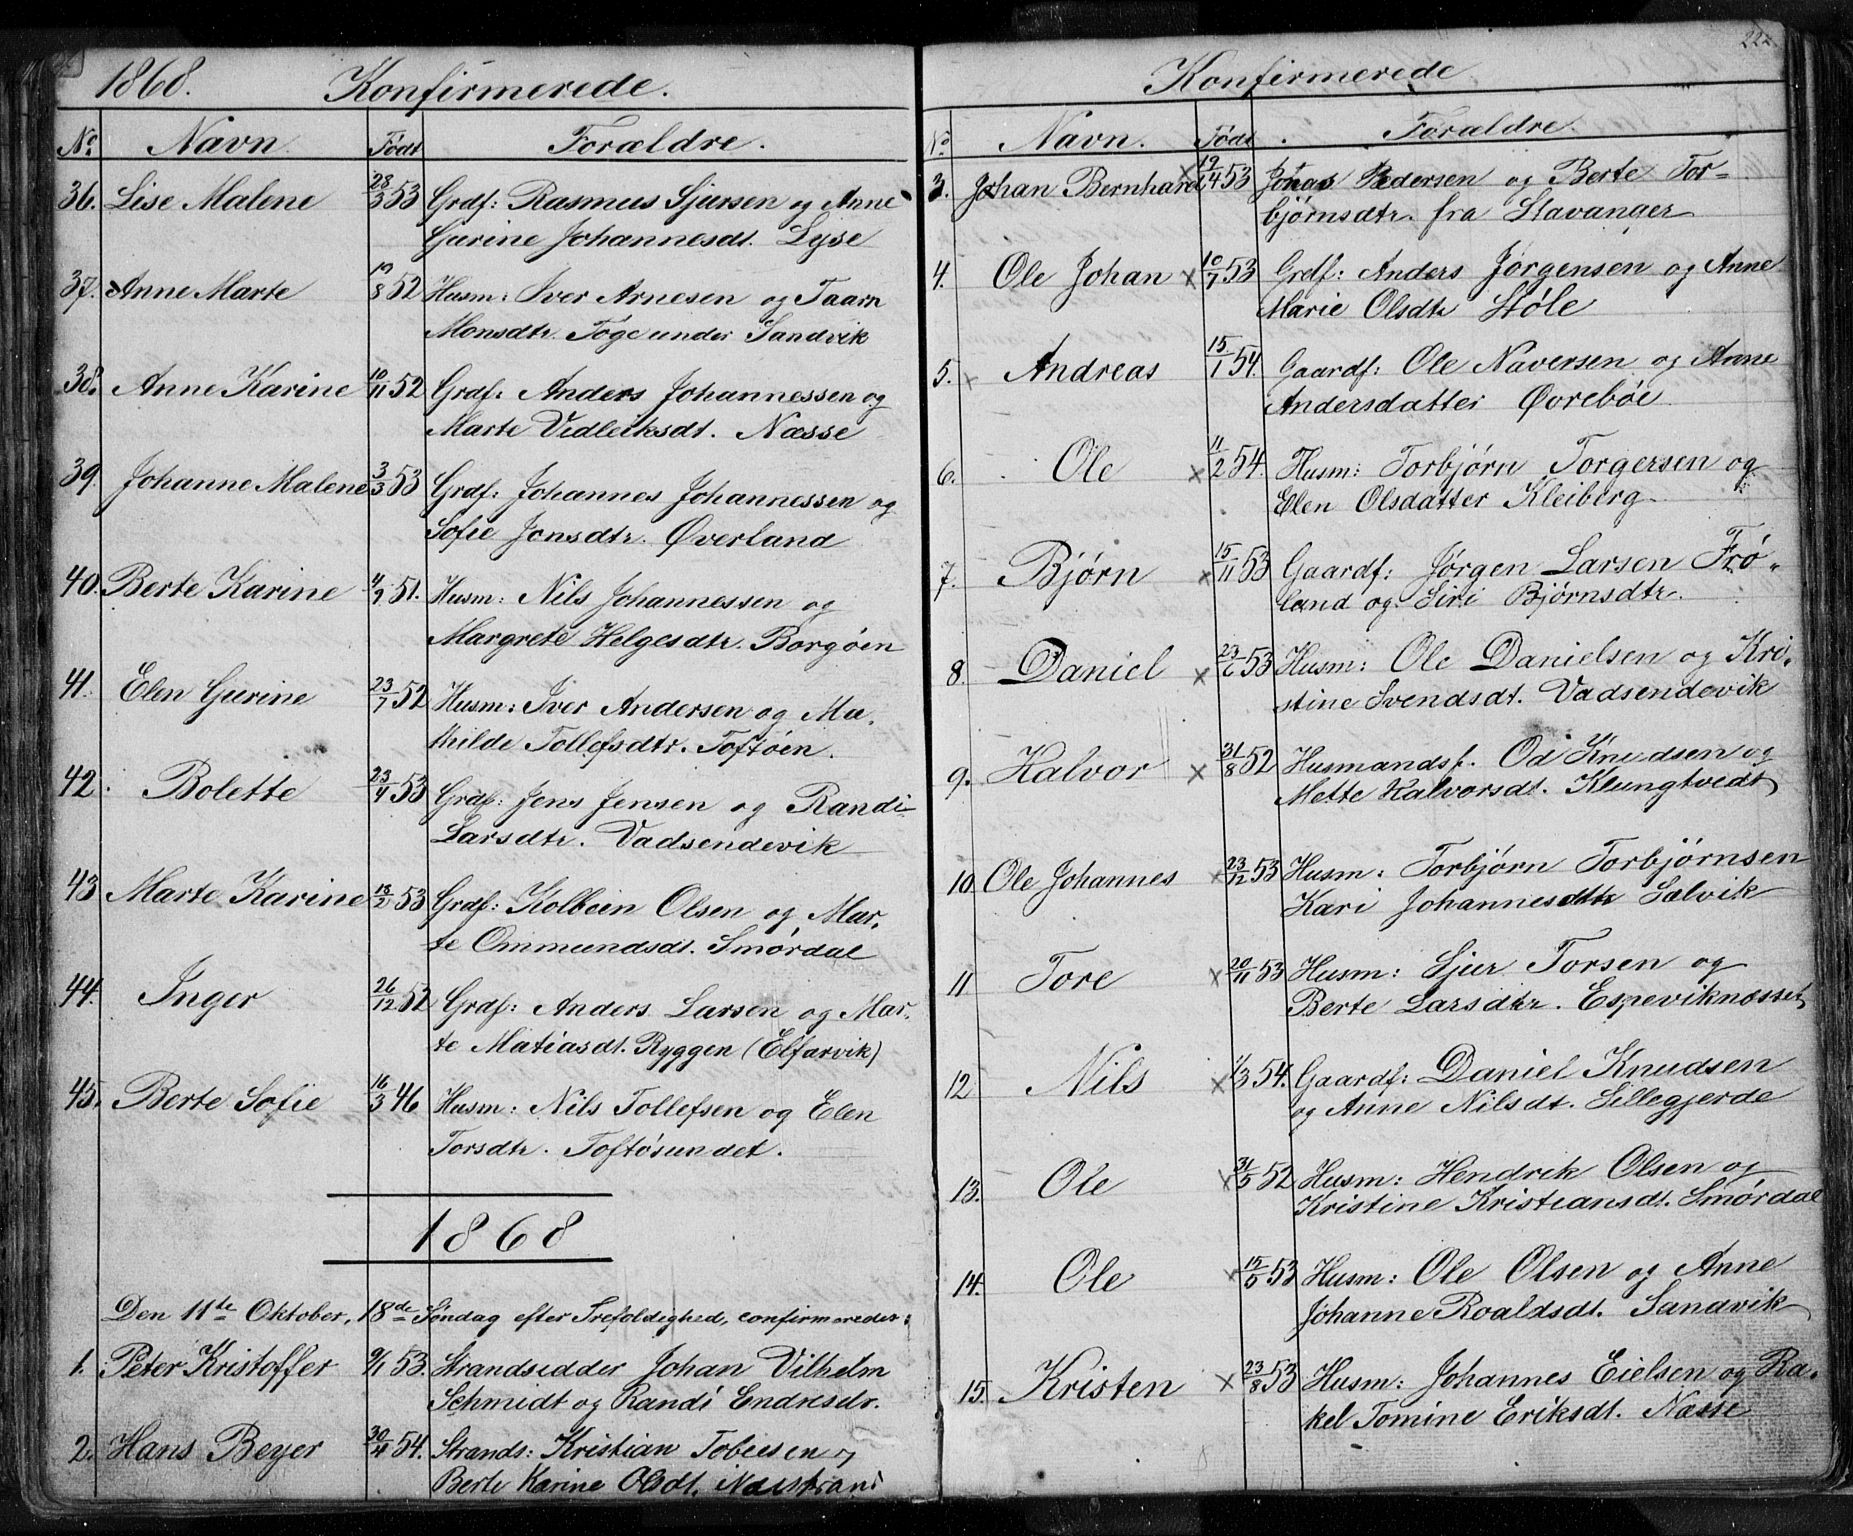 1868. Konfirmerede.
No. Navn. Födt Forældre.
36. Lise Malene 28/3 53 Grdf: Rasmus Sjursen og Anne
Gurine Johannesdt. Lyse
37. Anne Marte 19/8 52 Husm: Iver Arnesen og Taarn
Monsdtr. Töge under Sandvik
38. Anne Karine 10/11 52 Grdf: Anders Johannessen og
Marte Vidleiksdt. Næsse
39. Johanne Malene 3/3 53 Grdf: Johannes Johannessen og
Sofie Jonsdtr. Øverland
40. Berte Karine 4/7 51. Husm: Nils Johannessen og
Margrete Helgesdtr. Borgöen
41. Elen Gurine 23/7 52 Husm: Iver Andersen og Ma-
thilde Tollefsdtr. Toftöen.
42. Bolette 23/4 53 Grdf: Jens Jensen og Randi
Larsdtr. Vadsendevik
43 Marte Karine 18/2 53 Grdf: Kolbein Olsen og Mar-
te Ommundsdt. Smördal
44. Inger 26/12 52 Grdf: Anders Larsen og Mar-
te Matiasdt. Ryggen (Elfarvik)
45. Berte Sofie 16/3 46 Husm: Nils Tollefsen og Elen
Torsdtr. Toftösundet.
1868
Den 11te Oktober, 18de Söndag efter Trefoldighed, confirmeredes:
1. Peter Kristoffer 9/1 53. Strandsidder Johan Vilhelm
Schmidt og Randi Endresdr.
2. Hans Beyer 30/4 54. Strands: Kristian Tobiesen og
Berte Karine Olsdt. Næstrand
222.
Konfirmerede
No Navn. Födt Forældre.
3. Johan Bernhard × 19/4 53 Jonas Pedersen og Berte Tor-
bjørnsdtr. fra Stavanger
4. Ole Johan × 10/7 53 Grdf: Anders Jørgensen og Anne
Marie Olsdtr Støle
5. × Andreas 15/1 54. Gaardf: Ole Naversen og Anne
Andersdatter Øvrebøe
6. Ole × 11/2 54. Husm: Torbjørn Torgersen og
Elen Olsdatter Kleiberg
7. Bjørn × 15/11 53 Gaardf: Jørgen Larsen Frö-
land og Siri Bjørnsdtr.
8. Daniel × 23/6 53 Husm: Ole Danielsen og Kri-
stine Svendsdt. Vadsendevik
9. Halvor × 31/8 52 Husmandsf. Od Knudsen og
Mette Halvorsdt. Klungtvedt
10. Ole Johannes × 23/12 53 Husm: Torbjørn Torbjørnsen
Kari Johannesdtr Salvik
11 Tore × 20/11 53 Husm: Sjur Torsen og
Berte Larsdtr. Espeviknæsset
12 Nils × 1/3 54. Gaardf: Daniel Knudsen
og Anne Nilsdt. Lillegjerde
13. Ole × 31/5 52 Husm: Hendrik Olsen og
Kristine Kristiansdt. Smördal
14. Ole × 15/5 53 Husm: Ole Olsen og Anne
Johanne Roaldsdt. Sandvik
15. Kristen × 23/8 53 Husm: Johannes Eielsen og Ra-
kel Tomine Eriksdt. Næsse